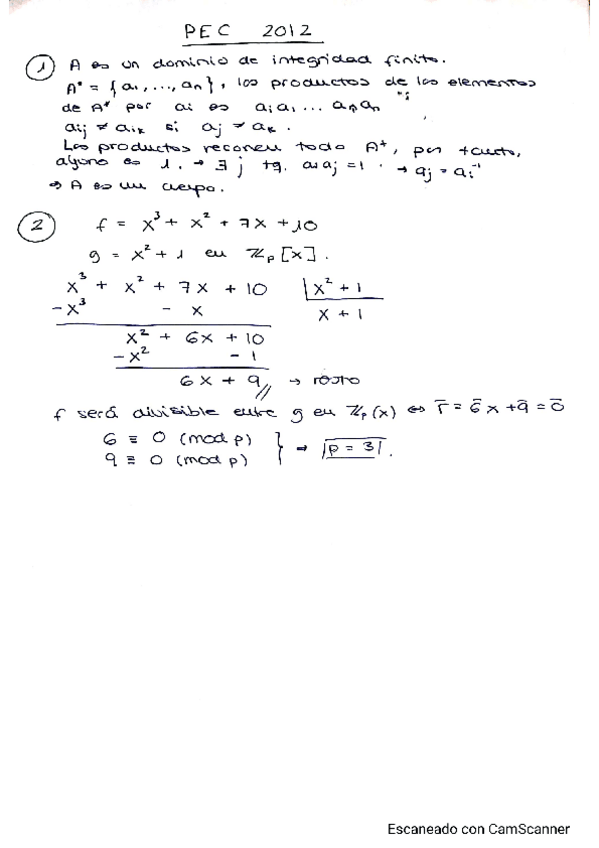 PEC 2012
1 A es un dominio de integridad finito.
A* = {a₁, ..., aₙ}, los productos de los elementos
de A* por ai es aᵢa₁ ... aᵢaₙ
aᵢⱼ ≠ aᵢₖ si aⱼ ≠ aₖ.
Los productos recorren todo A*, por tanto,
alguno es 1. → ∃ j tq. aᵢaⱼ = 1. → aⱼ = aᵢ⁻¹
⇒ A es un cuerpo.
2 f = x³ + x² + 7x + 10
g = x² + 1 en ℤₚ[x].
x³ + x² + 7x + 10 | x² + 1
-x³ - x x + 1
x² + 6x + 10
-x² - 1
6x + 9 → resto
f será divisible entre g en ℤₚ(x) ⇔ r̄ = 6̄x + 9̄ = 0̄
6 ≡ 0 (mod p)
9 ≡ 0 (mod p) } → p = 3.
Escaneado con CamScanner